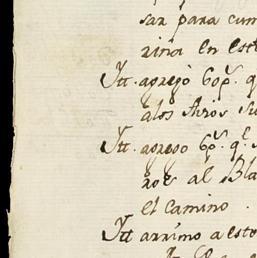 sar para cum
riña en este
Itt. agregò 60p.s q
a los Arios su
Itt. agrego 6p.s q.e s
nos al Bla
el Camino .
Itt arrimo a esto